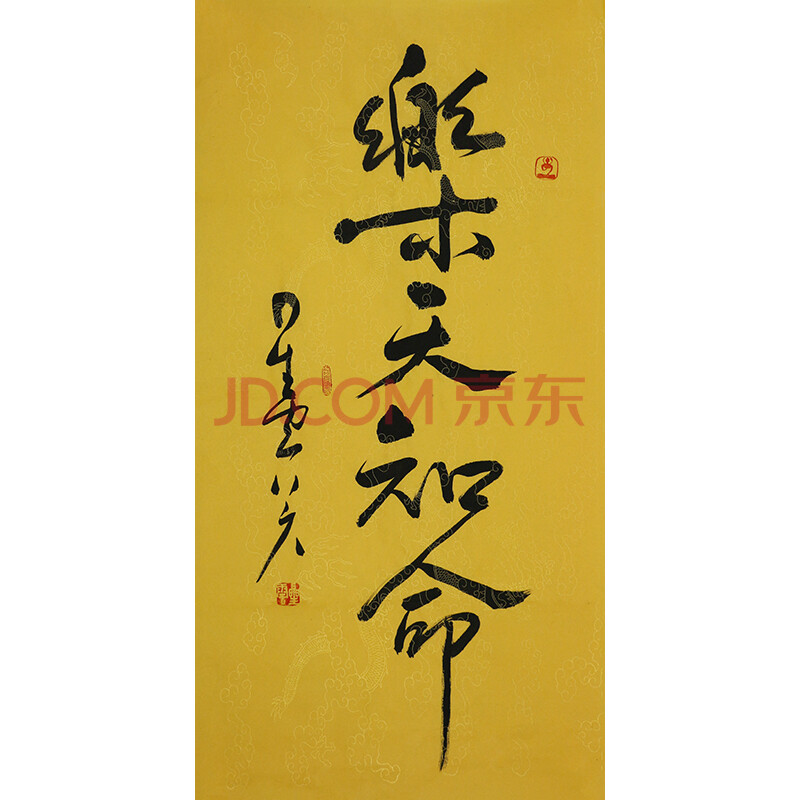 樂天知命
星雲
JD.COM 京东